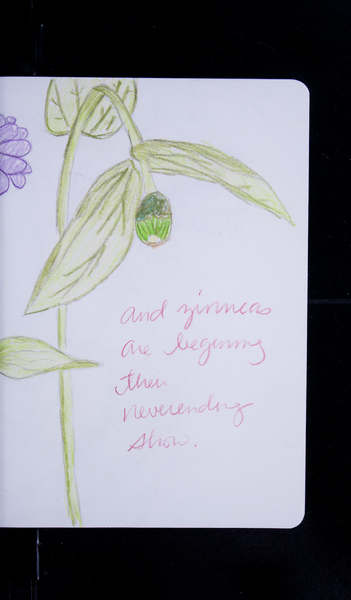 and zinneas
are beginning
their
neverending
show.